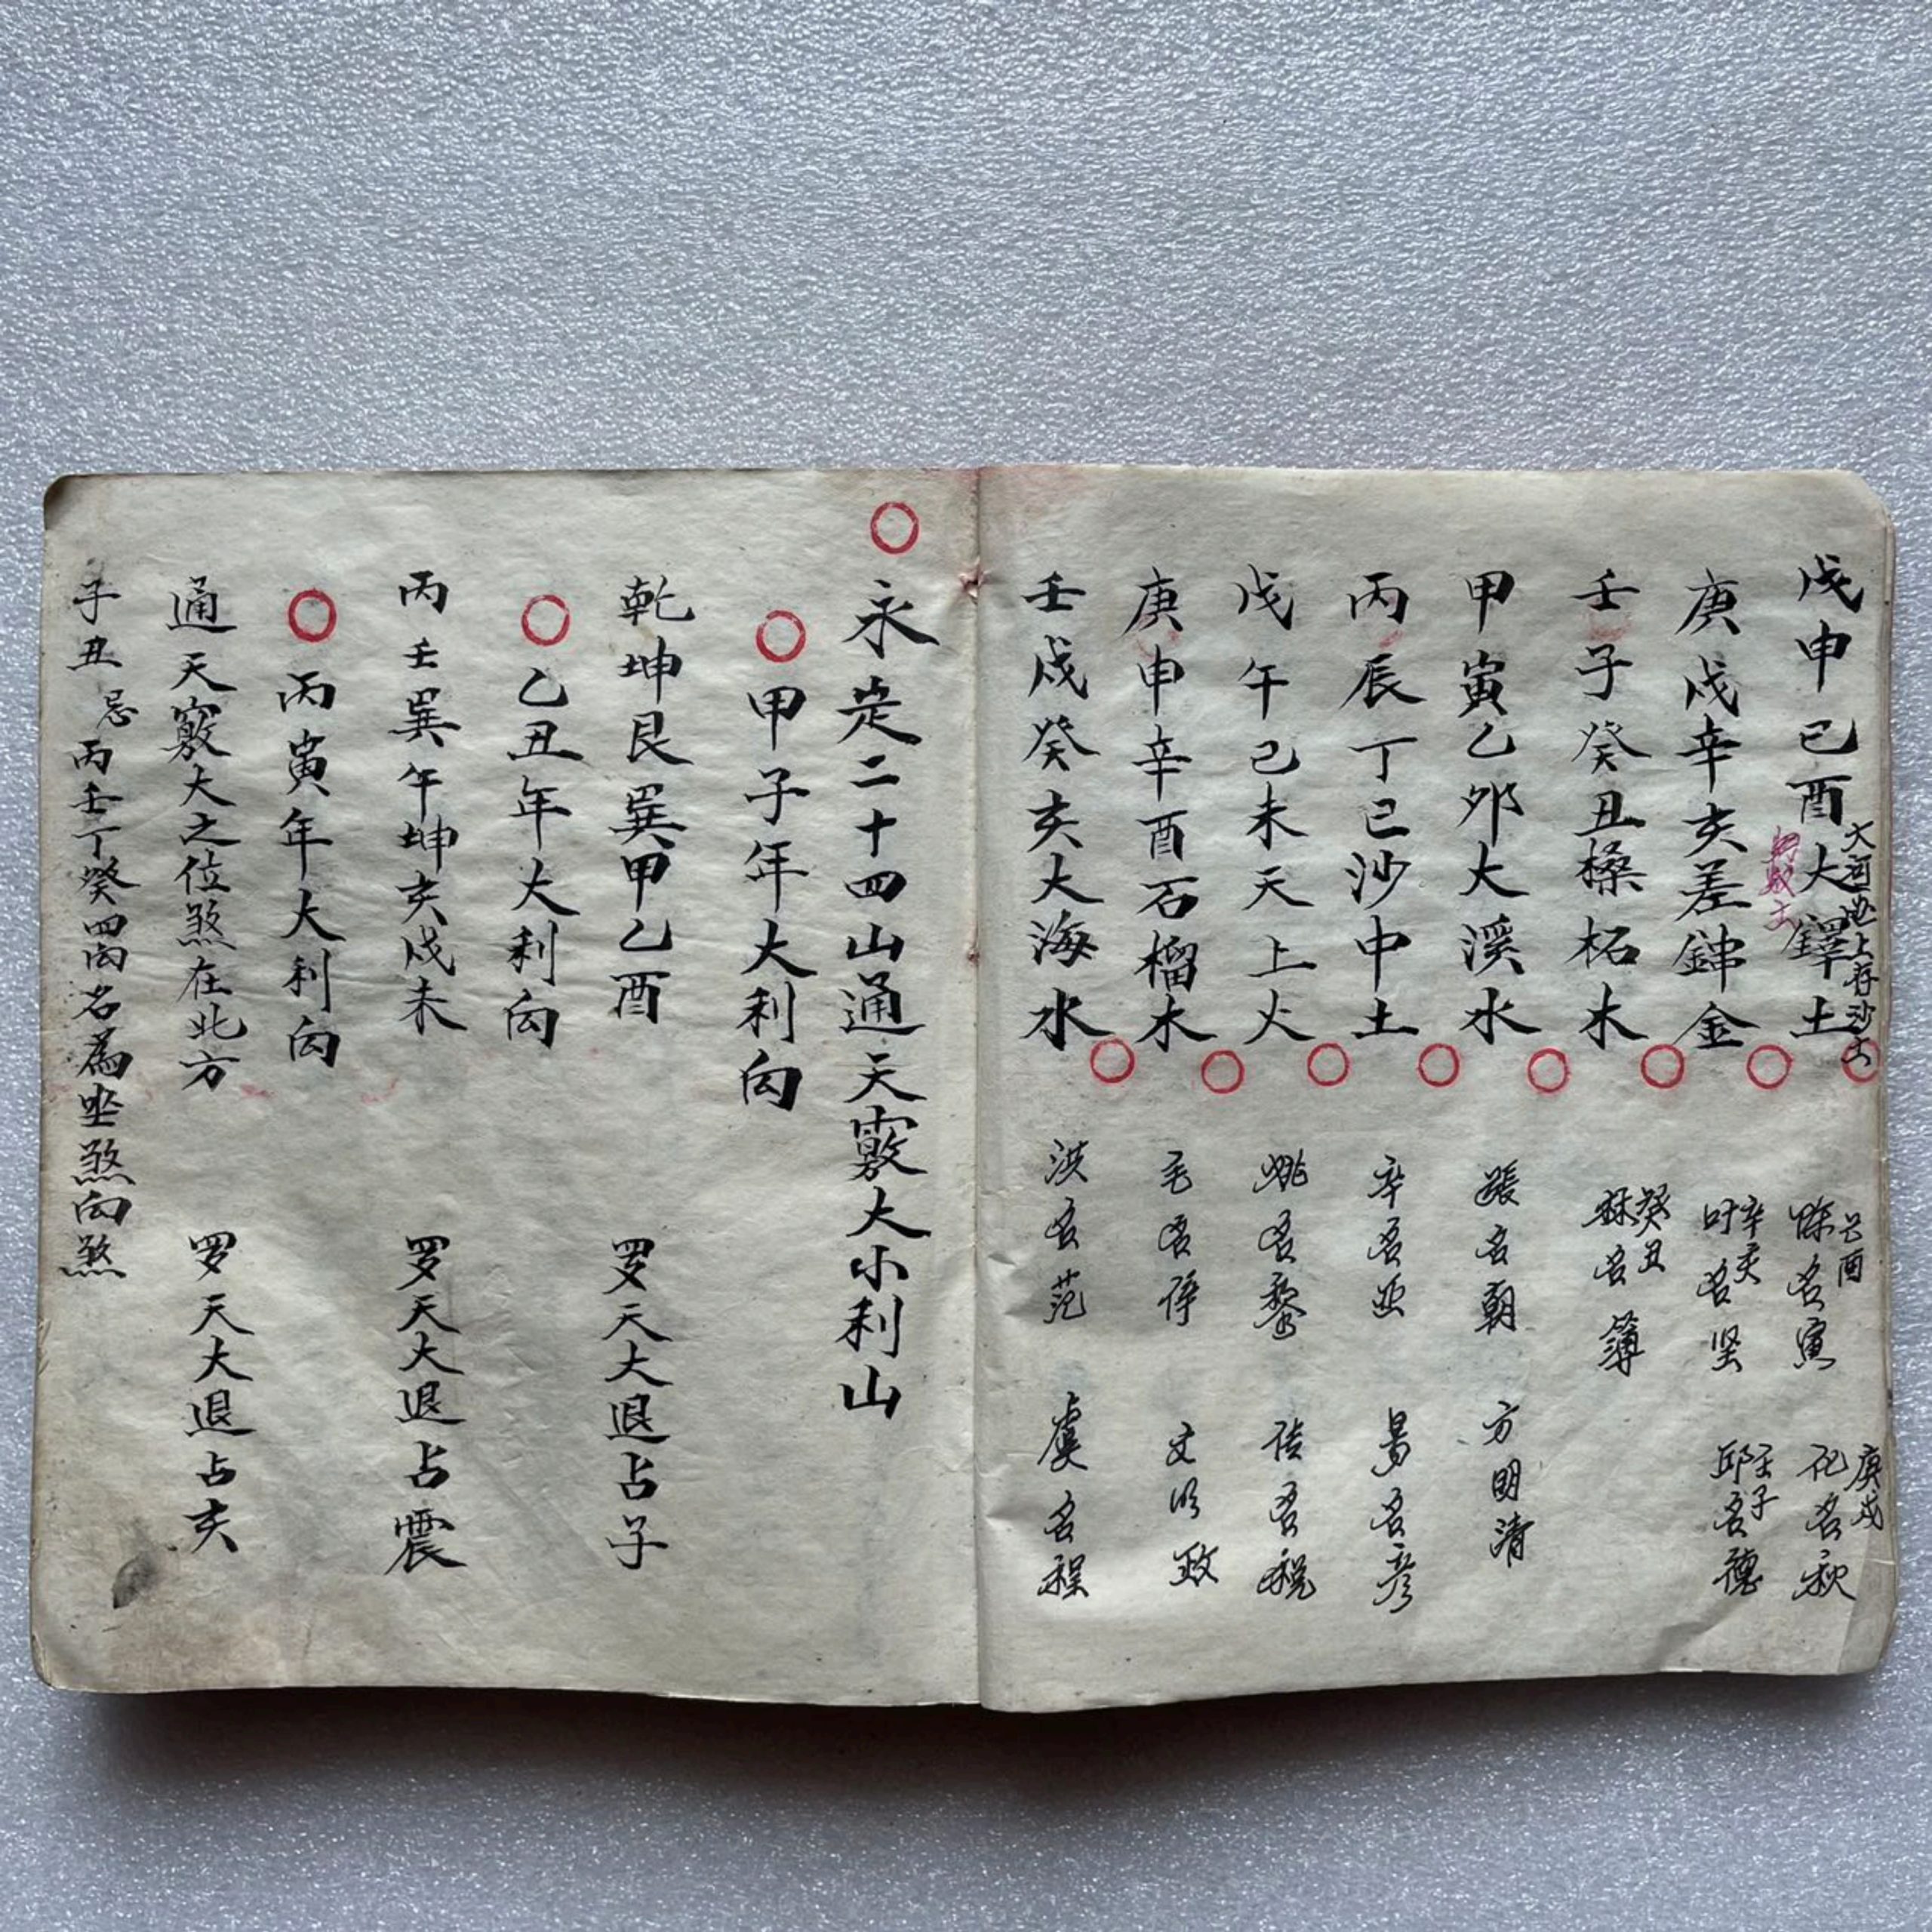 戊申己酉大鐸土
大河地上存沙土
己酉
陈名寅
庚戌
祀名秋
庚戌辛亥差鈽金
辛亥
叶名坚
壬子
邱名德
壬子癸丑桑柘木
癸丑
林名簿
甲寅乙夘大溪水
張名朝
方明清
丙辰丁巳沙中土
辛名亚
易名彦
戊午己未天上火
姚名黎
名税
庚申辛酉石榴木
毛名
文政
壬戌癸亥大海水
洪名范
虞名程
永定二十四山通天竅大小利山
甲子年大利向
乾坤艮巽甲乙酉
罗天大退占子
乙丑年大利向
丙壬巽午坤亥戌未
罗天大退占震
丙寅年大利向
通天竅大之位煞在北方
罗天大退占亥
子丑忌丙壬丁癸四向名為坐煞向煞